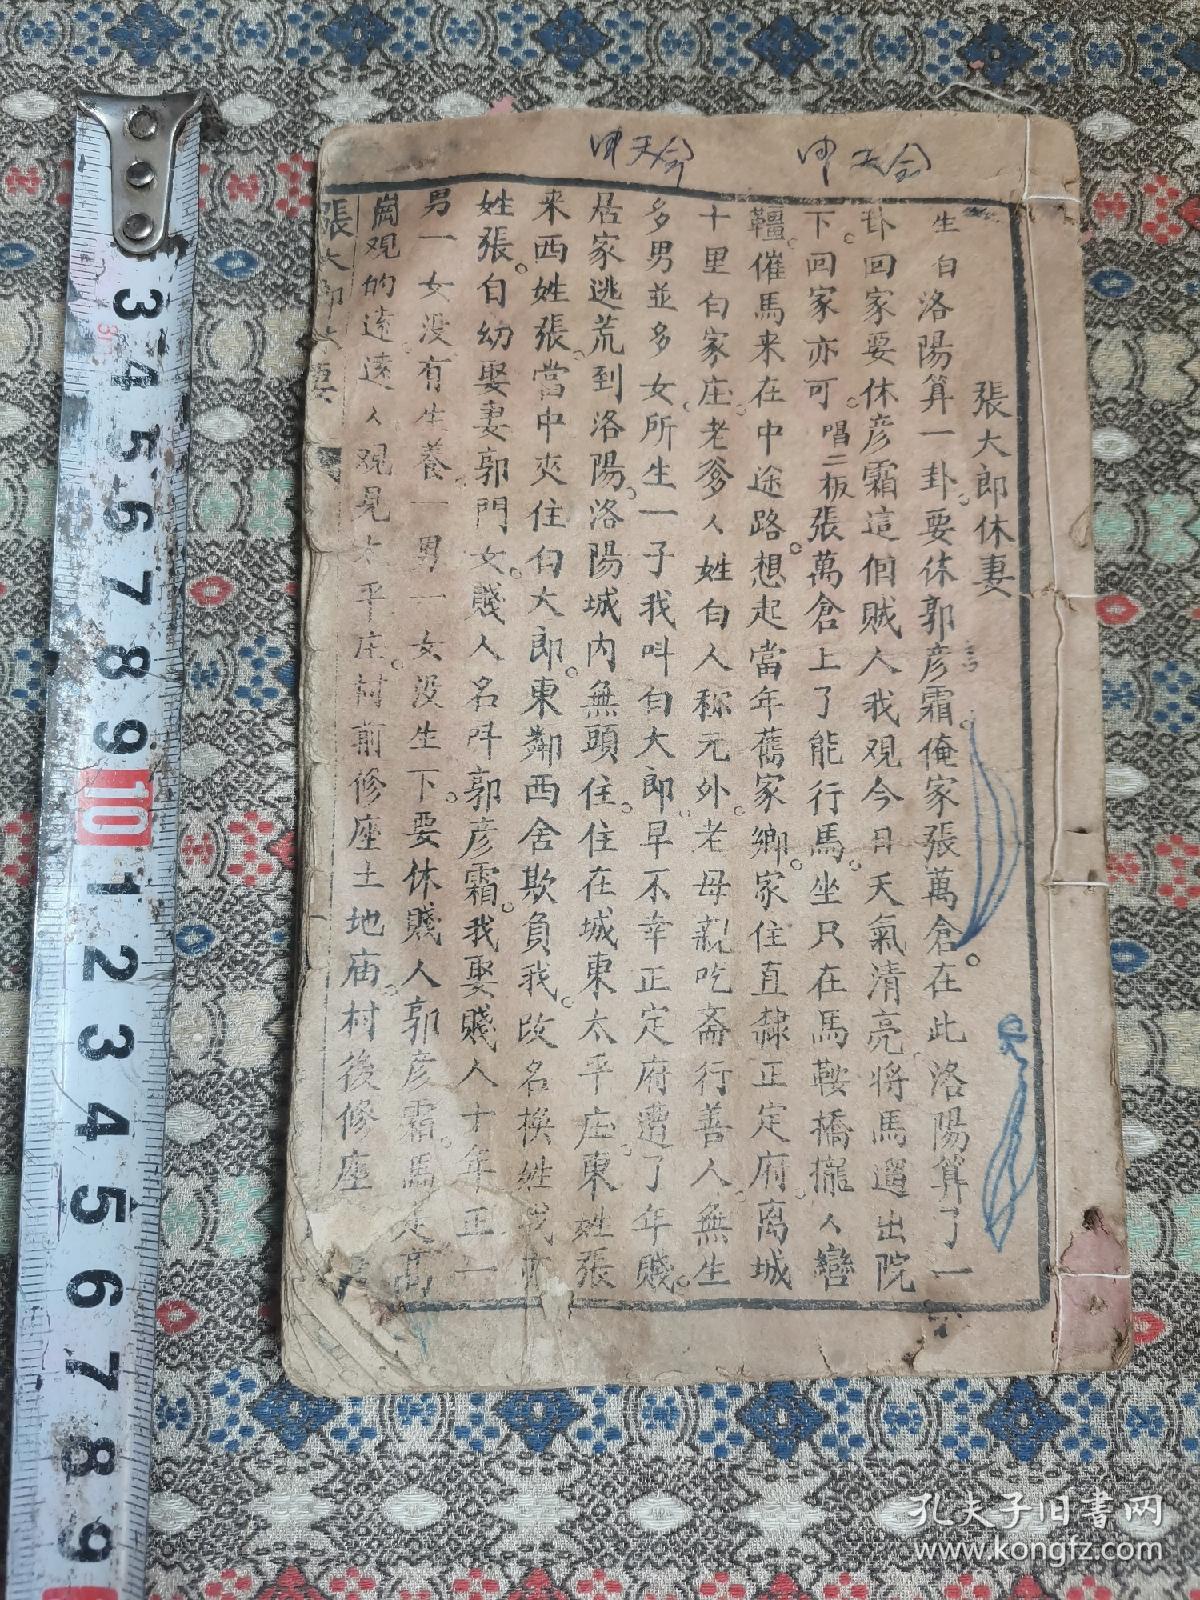 張大郎休妻
生白洛陽算一卦。要休郭彦霜。俺家張萬倉。在此洛陽算了一
卦回家要休彦霜這個贼人我观今日天氣清亮。将馬遛出院
下。回家亦可。唱二板張萬倉上了能行馬。坐只在馬鞍橋攏人轡
韁。催馬来在中途路。想起當年舊家鄉。家住直隸正定府。离城
十里白家庄。老爹人姓白人称元外。老母親吃斋行善人。無生
多男並多女。所生一子我呌白大郎。早不幸正定府遭了年賤。
居家逃荒到洛陽。洛陽城内無頭住。住在城東太平庄。東姓張
来西姓張。當中夾住白大郎。東鄰西舍欺負我。改名换姓我亦
姓張。自幼娶妻郭門女。賤人名呌郭彦霜。我娶賤人十年正一
男一女没有生養。一男一女没生下。要休賤人郭彦霜。馬走高
崗观的遠。遠人观見太平庄。村前修座土地庙。村後修座
張大郎休妻
孔夫子旧书网
www.kongfz.com
3 4 5 6 7 8 9 10 1 2 3 4 5 6 7 8 9